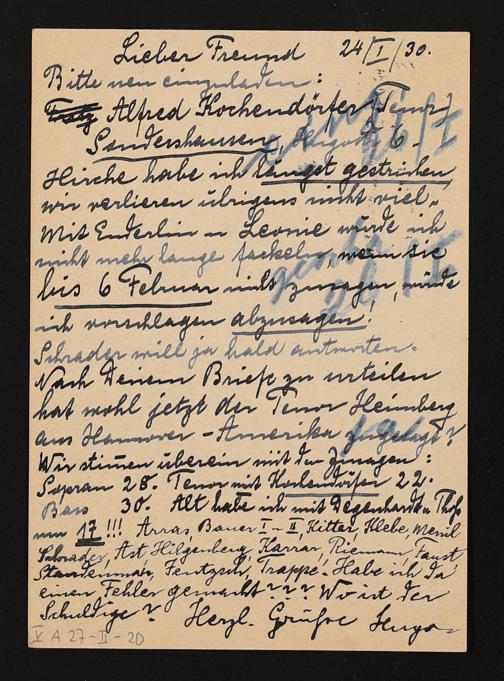 Lieber Freund 24/I/30.
Bitte neu einzuladen:
Alfred Kochendörfer (Tenor)
Sondershausen, 6.
Hirche habe ich längst gestrichen
wir verlieren übrigens nicht viel.
Mit Enderlin u Leonie würde ich
nicht mehr lange fackeln, wenn sie
bis 6 Februar nicht zusagen, würde
ich vorschlagen abzusagen!
Schrader will ja bald antworten.
Nach Deinem Briefe zu urteilen
hat wohl jetzt der Tenor Heimberg
aus Hannover - Amerika zugesagt?
Wir stimen überein mit den Zusagen:
Sopran 28. Tenor mit Kochendörfer 22.
Bass 30. Alt habe ich mit Degenhardt u
nur 17!!! Arras, Bauer I - II, Kitter, Klebe,
Schrader, Ast, Hilgenberg, Karrar, Riemann, Faust
Trappe. Habe ich da
einen Fehler gemacht??? Wo ist der
Schuldige? Herzl. Grüße Hugo
V A 27-II-20